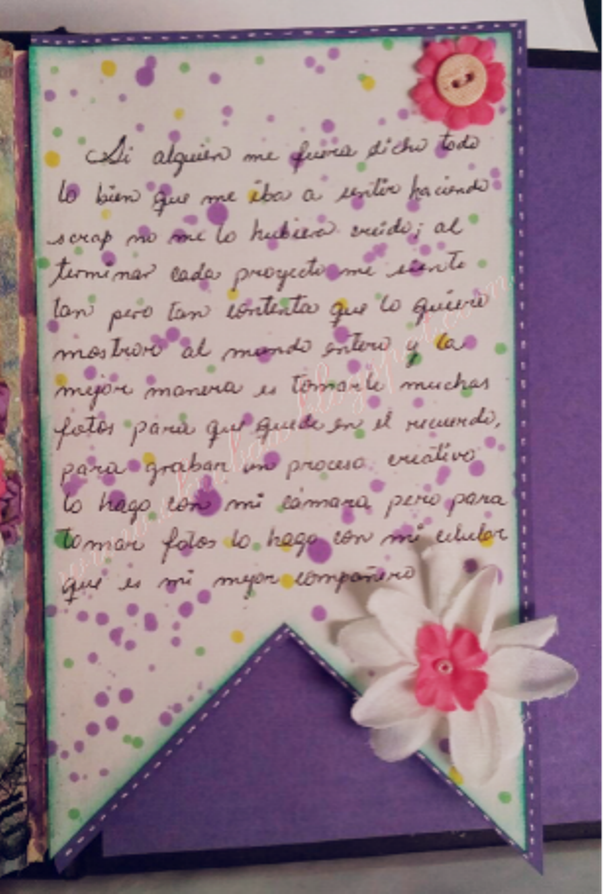 Si alguien me fuera dicho todo
lo bien que me iba a sentir haciendo
scrap no me lo hubiera creido; al
terminar cada proyecto me siento
tan pero tan contenta que lo quiero
mostrar al mundo entero y la
mejor manera es tomarle muchas
fotos para que quede en el recuerdo,
para grabar un proceso creativo
lo hago con mi cámara pero para
tomar fotos lo hago con mi celular
que es mi mejor compañero